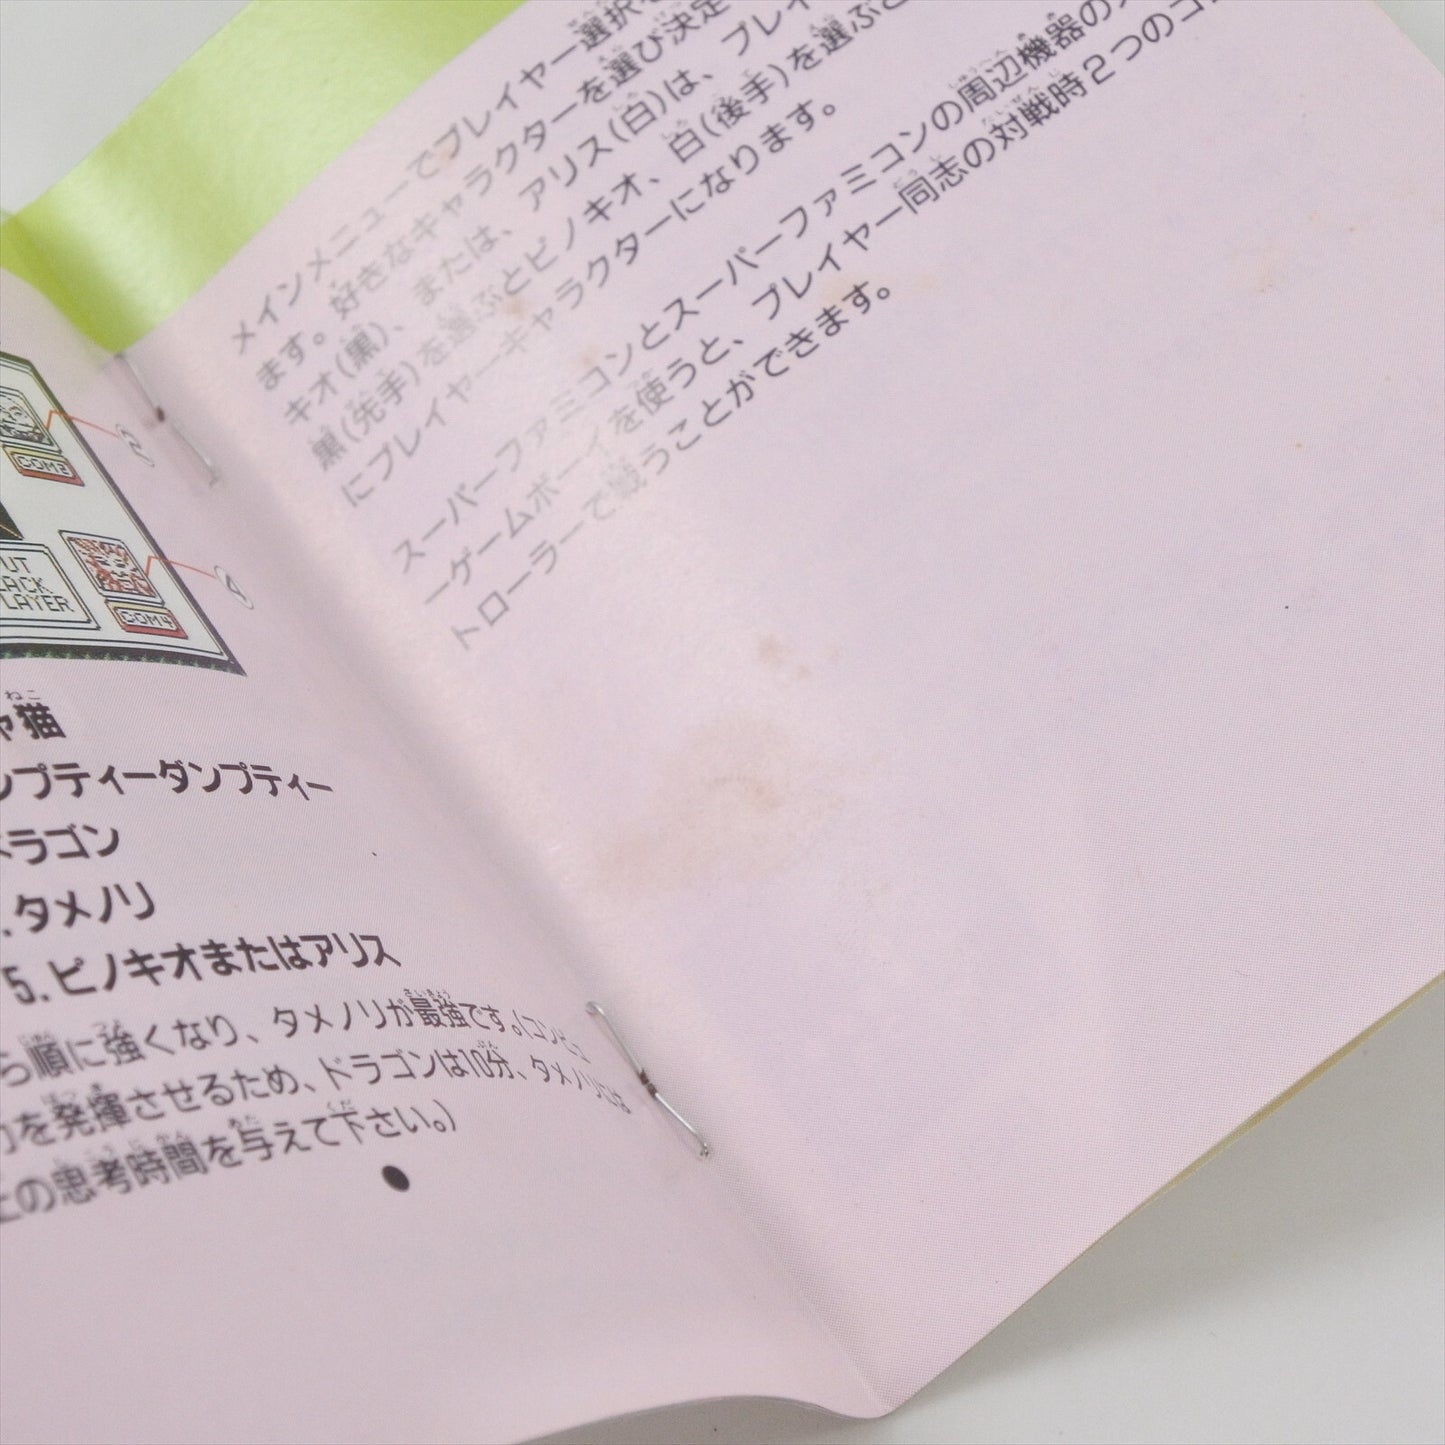 COM3
②
PUT
BLACK
PLAYER
COM4
④
ャ猫
ンプティーダンプティー
ドラゴン
.タメノリ
5.ピノキオまたはアリス
ら順に強くなり、タメノリが最強です。(コンピュ
力を発揮させるため、ドラゴンは10分、タメノリには
上の思考時間を与えて下さい。)
メインメニューでプレイヤー選択
ます。好きなキャラクターを選び決定
キオ(黒)、または、アリス(白)は、プレイ
黒(先手)を選ぶとピノキオ、白(後手)を選ぶと
にプレイヤーキャラクターになります。
スーパーファミコンとスーパーファミコンの周辺機器のス
ーゲームボーイを使うと、プレイヤー同志の対戦時2つのコン
トローラーで戦うことができます。